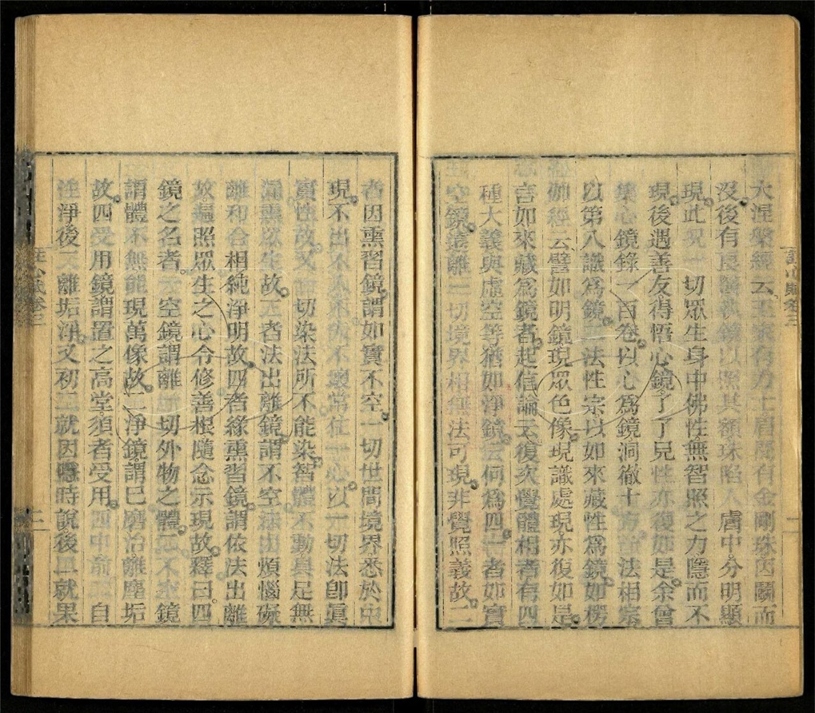 註心賦卷二
大涅槃經云王家有力士眉間有金剛珠因鬪而
沒後有良醫執鏡以照其額珠陷入膚中分明顯
現此況一切眾生身中佛性無智照之力隱而不
現後遇善友得悟心鏡了了見性亦復如是余曾
集心鏡錄一百卷以心爲鏡洞徹十方法相宗
以第八識爲鏡法性宗以如來藏性爲鏡如楞
伽經云譬如明鏡現眾色像現識處現亦復如是
言如來藏爲鏡者起信論云復次覺體相者有四
種大義與虛空等猶如淨鏡云何爲四一者如實
空鏡遠離一切境界相無法可現非覺照義故二
者因熏習鏡謂如實不空一切世間境界悉於中
現不出不入不失不壞常住一心以一切法卽眞
實性故又一切染法所不能染智體不動具足無
漏熏眾生故三者法出離鏡謂不空法出煩惱礙
離和合相純淨明故四者緣熏習鏡謂依法出離
故徧照眾生之心令修善根隨念示現故釋曰四
鏡之名者一空鏡謂離一切外物之體二不空鏡
謂體不無能現萬像故三淨鏡謂已磨治離塵垢
故四受用鏡謂置之高堂須者受用四中前二自
性淨後二離垢淨又初二就因隱時說後二就果
註心賦卷二